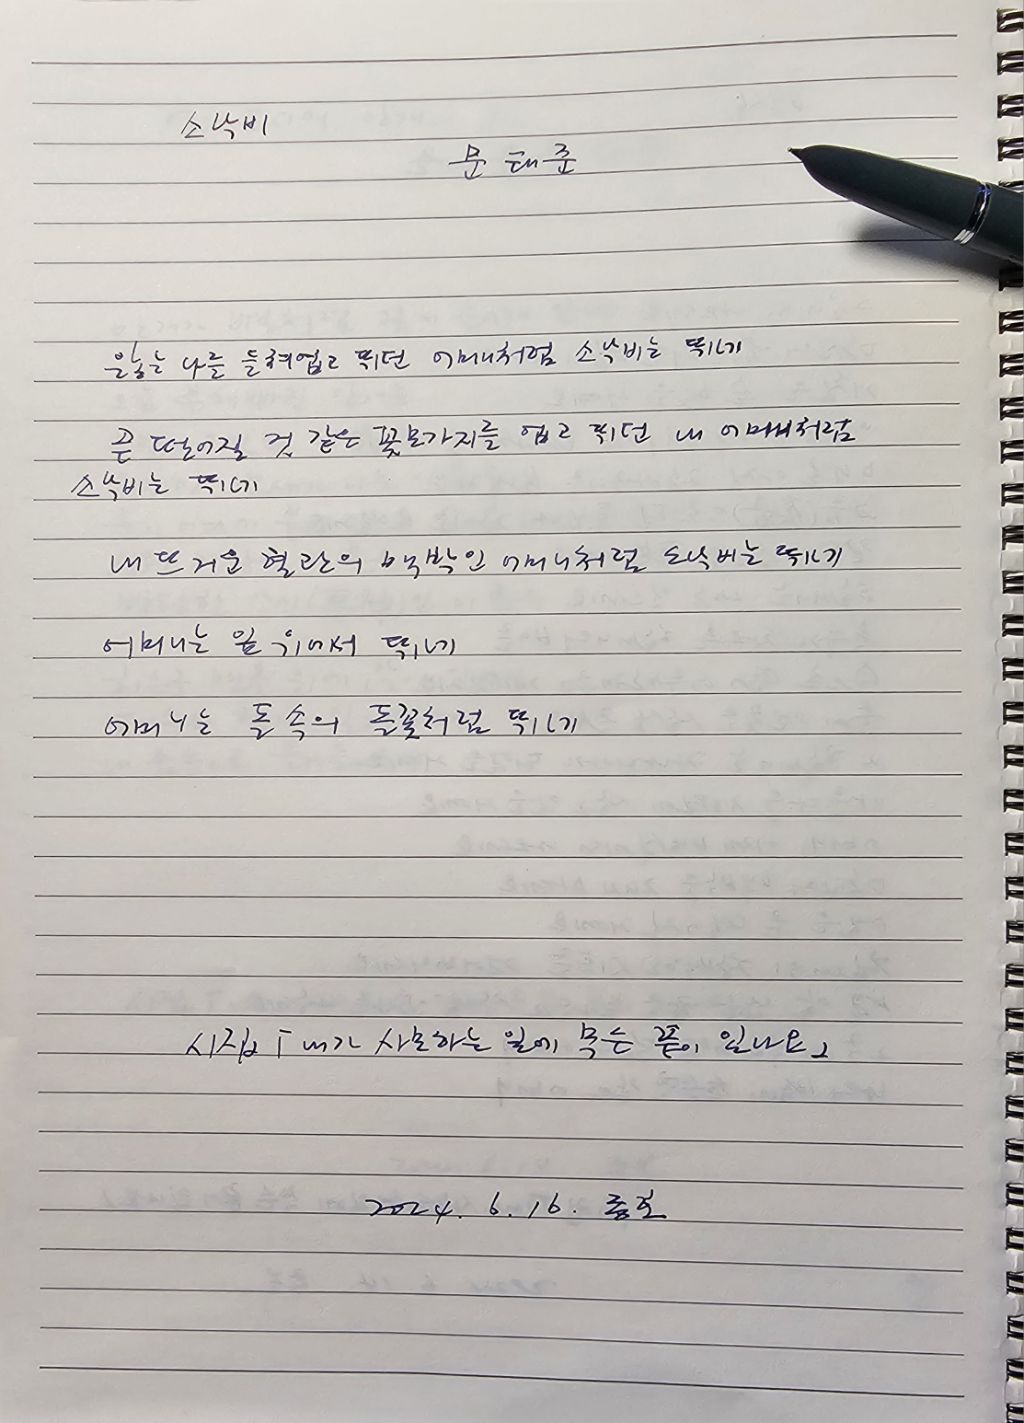 소낙비
문태준
앓는 나를 들쳐업고 뛰던 어머니처럼 소낙비는 뛰네
곧 떨어질 것 같은 꽃모가지를 업고 뛰던 내 어머니처럼
소낙비는 뛰네
내 뜨거운 혈관의 맥박인 어머니처럼 소낙비는 뛰네
어머니는 잎 위에서 뛰네
어머니는 돌 속의 돌꽃처럼 뛰네
시집 「내가 사모하는 일에 무슨 끝이 있나요」
2024. 6. 16.